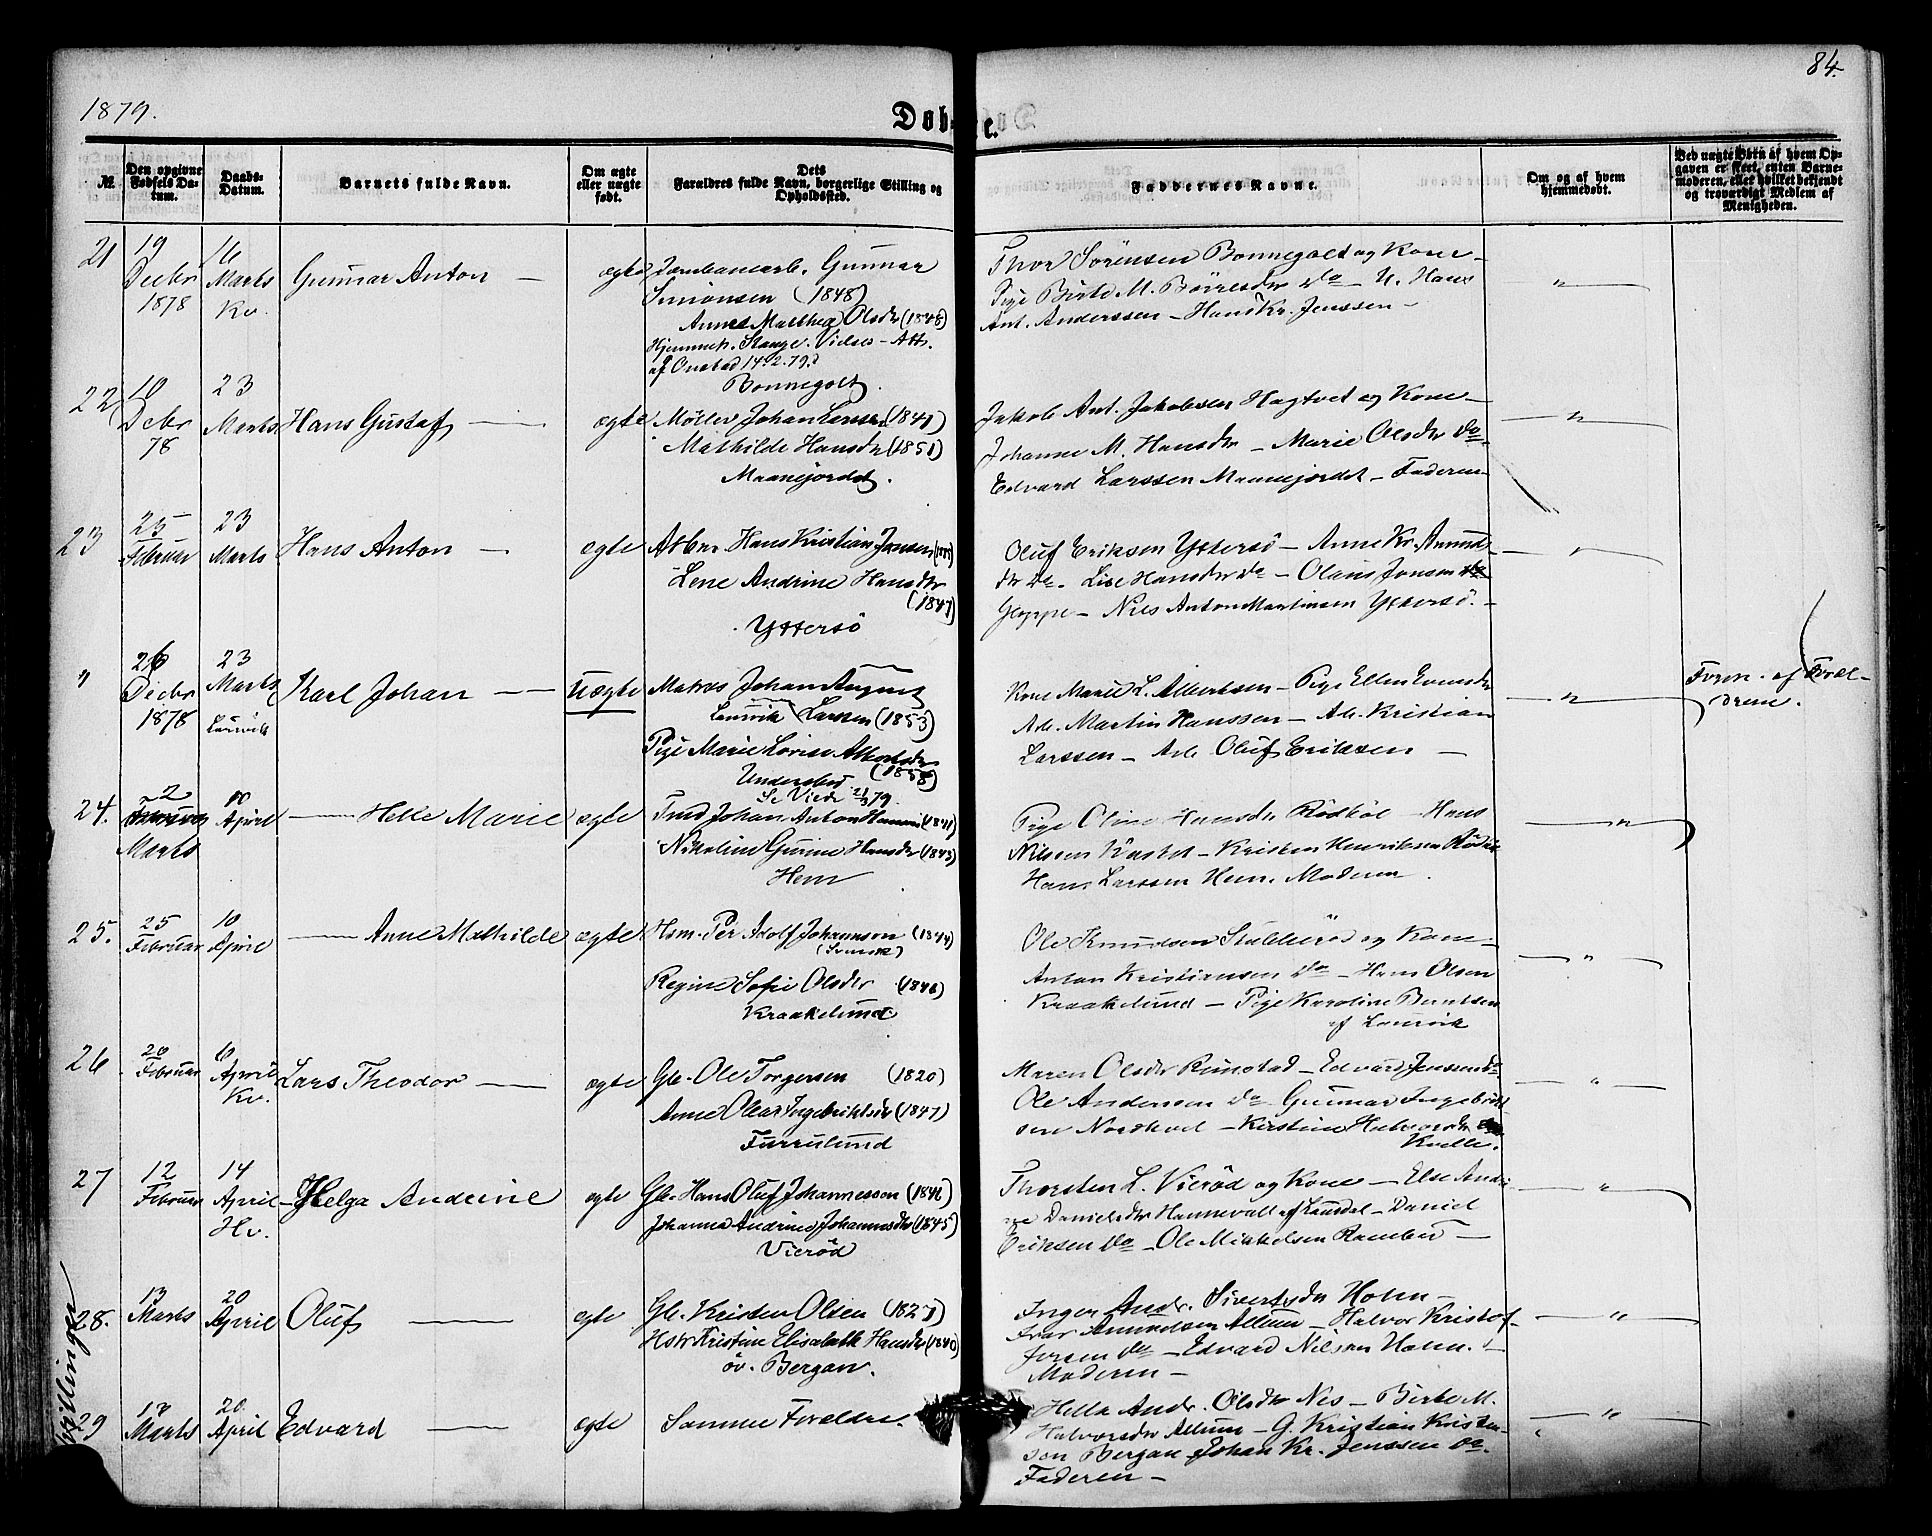 1879.
84.
Døbte.
№
Den opgivne Fødsels Datum.
Daabs-Datum.
Barnets fulde Navn.
Om ægte eller uægte født.
Dets Forældres fulde Navn, borgerlige Stilling og Opholdssted.
Faddernes Navne.
Om og af hvem hjemmedøbt.
Ved uægte Børn af hvem Opgaven er skeet, enten Barnemoderen, eller hvilket bekjendt og troværdigt Medlem af Menigheden.
21
19 Decbr 1878
16 Marts Kv.
Gunnar Anton
ægte
Jernbanearb. Gunnar
Simonsen (1848)
Anne Mathea Olsdr (1848)
Hjemmeh. Stange. Vielses-Att.
af Onstad 14.2.79.
Bonnegolt
Thor Sörensen Bonnegolt og Kone
Pige Birte M. Börresdr do - U. Hans
Ant. Anderssen - Hans Kr. Jenssen -
"
22
10 Decbr 78
23 Marts
Hans Gustaf
ægte
Møller Johan Larsen (1841)
Mathilde Hansdr (1851)
Maanejordet.
Jakob Ant. Jakobsen Hagtvet og Kone -
Johanne M. Hansdr - Marie Olsdr do
Edvard Larssen Maanejordet - Faderen
"
23
25 Februar
23 Marts
Hans Anton
ægte
Arbm Hans Kristian Jansen
Lene Andrine Hansdr
(1847)
Yttersö
Oluf Eriksen Yttersö - Anne Kr. Amunds
dr do. Lise Hansdr do - Olaus Jonsen
Gloppe - Nils Anton Martinsen Yttersö. -
"
"
26 Decbr 1878
23 Marts Laurvik
Karl Johan
uægte
Matros Johan August
Laurvik Larsen (1853)
Pige Marie Lovise Albertsdr
Undersbo (1858)
Se Viede 21/3 79.
Kone Marie L. Albertsen - Pige Ellen Evensdr
Arb. Martin Hanssen - Arb. Kristian
Larssen - Arb Oluf Eriksen -
"
Foren. af Foræl-
drene.
24.
2 Februar Marts
10 April
Helle Marie
ægte
Tmd Johan Anton Hansen (1841)
Nikoline Gurine Hansdr (1843)
Hem
Pige Oline Hansdr Rödböl - Hans
Nilssen Kastet - Kristen Henriksen Rödb
Hans Larssen Hem. Moderen.
"
25.
25 Februar
10 April
Anne Mathilde
ægte
Hsm. Per Adolf Johannson (1844)
(Svensk)
Regine Sofie Olsdr (1846)
Kraakelund
Ole Knudsen Stulleröd og Kone -
Anton Kristiansen do - Hans Olsen
Kraakelund - Pige Karoline Berntsen
af Laurvik
"
26
20 Februar
6 April Kv.
Lars Theodor
ægte
Gb. Ole Torgersen (1820)
Anne Olea Ingebriktsdr (1847)
Furrulund
Maren Olsdr Rimstad - Edvard Jenssen do
Ole Andersen do Gunnar Ingebrikt
sen Nordkvel - Kirstine Halvorsdr
Kvelle.
"
27
12 Februar
14 April Hv.
Helga Andrine
ægte
Gb. Hans Oluf Johannesson (1846)
Johanne Andrine Johannesdr (1845)
Vieröd
Thorsten L. Vieröd og Kone - Else Andri
ne Danielsdr Hannevall af Laurdal - Daniel
Eriksen do - Ole Mikkelsen Ramber -
"
28.
13 Marts
20 April
Oluf
ægte
Gb. Kristen Olsen (1827)
Hstr Kristine Elisabeth Hansdr (1840)
öv. Bergan.
Inger Andr. Sivertsdr Holm -
Ivar Amundsen Allum - Halvor Kristof-
fersen do - Edvard Nilsen Holm. -
Moderen -
"
Tvillinger
29
13 Marts
20 April
Edvard
ægte
Samme Forældre.
Helle Andr. Olsdr Nes - Birte M.
Halvorsdr Allum - G. Kristian Kristen-
sen Bergan - Johan Kr. Jenssen do.
Faderen -
"